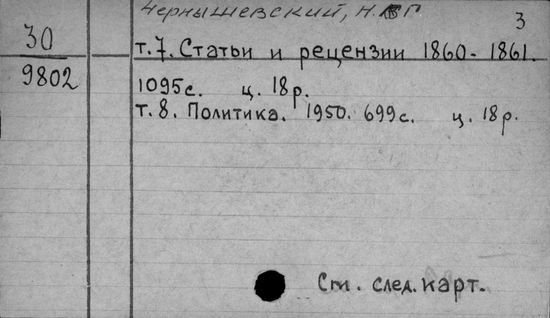 Чернышевский, Н. Г.
3
30
9802
т.7. Статьи и рецензии 1860-1861.
1095с. ц. 18р.
т.8. Политика. 1950. 699с. ц. 18р.
См. след. карт.